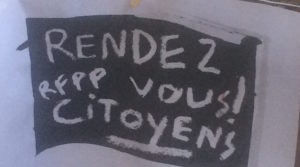 RENDEZ
RFPP VOUS!
CiTOYENS